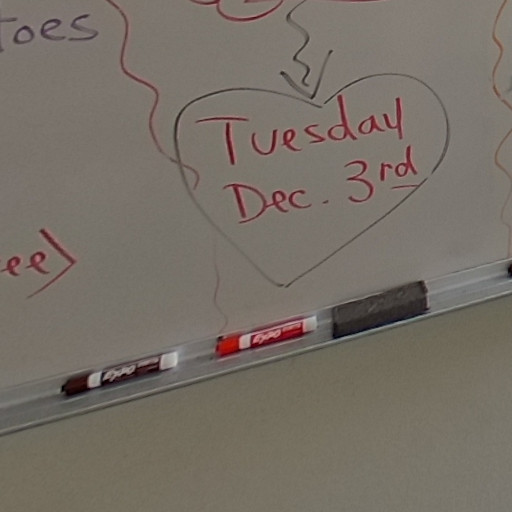 toes
Tuesday
Dec. 3rd
ee)
EXPO
EXPO